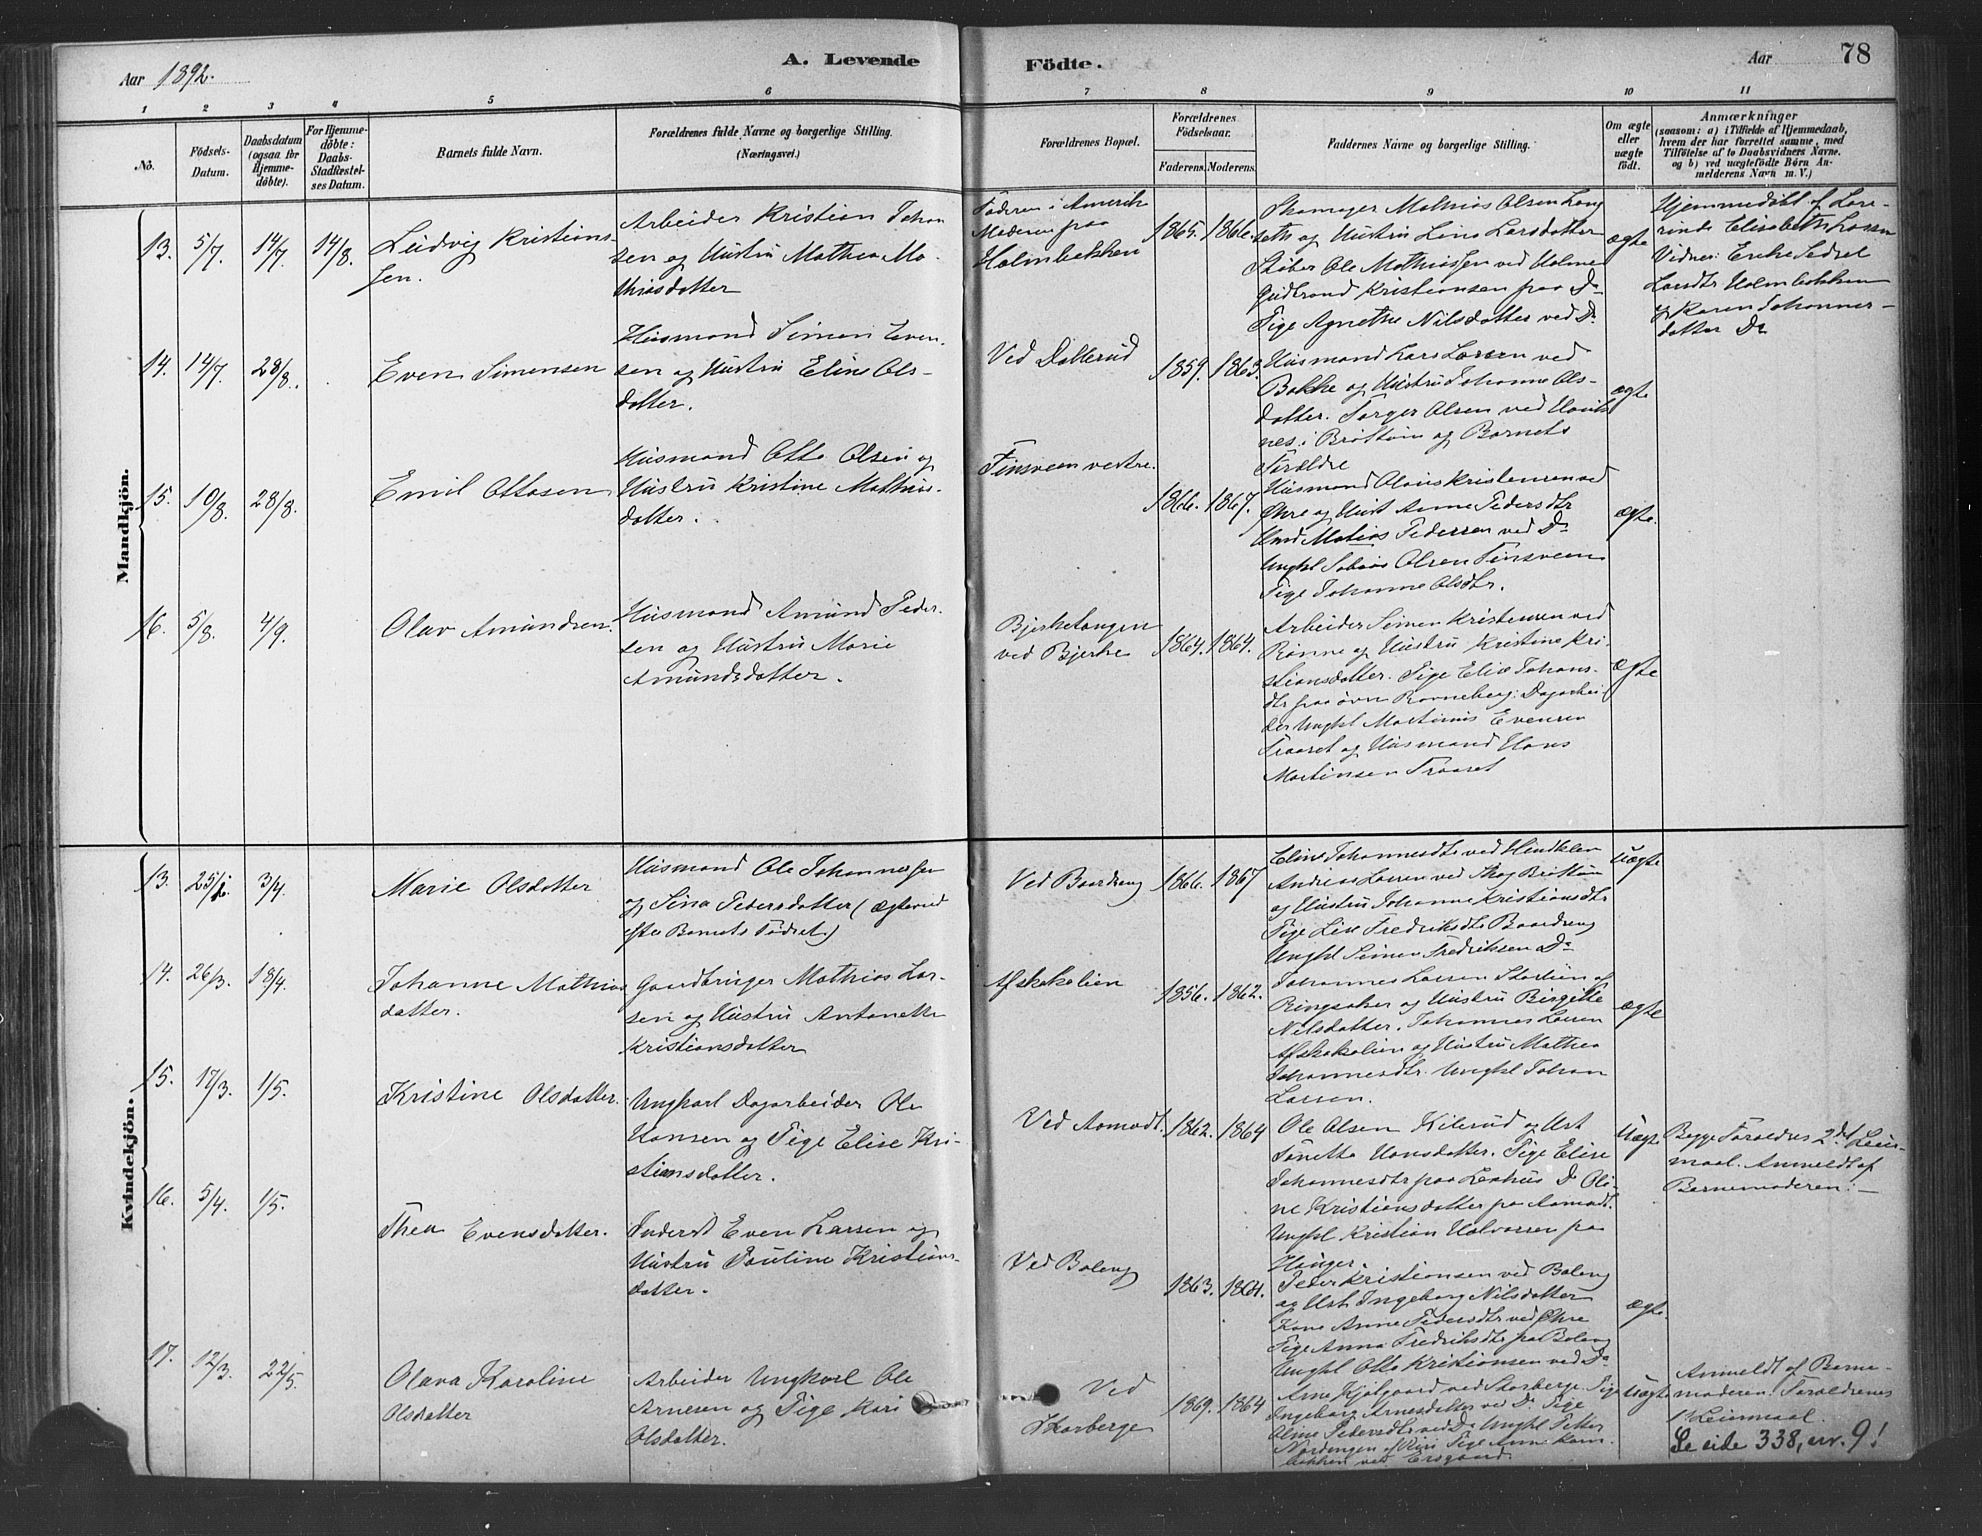 Aar 1892.
A. Levende
Födte.
Aar
78
1
2
3
4
5
6
7
8
9
10
11
No.
Födsels-
Datum.
Daabsdatum
(ogsaa for
Hjemme-
döbte).
For Hjemme-
döbte:
Daabs-
Stadfæstel-
ses Datum.
Barnets fulde Navn.
Forældrenes fulde Navne og borgerlige Stilling.
(Næringsvei.)
Forældrenes Bopæl.
Forældrenes
Födselsaar.
Faderens.
Moderens.
Faddernes Navne og borgerlige Stilling.
Om ægte
eller
uægte
födt.
Anmærkninger
(saasom: a) i Tilfælde af Hjemmedaab,
hvem der har forrettet samme, med
Tilföielse af to Daabsvidners Navne.
og b) ved uægtefödte Börn An-
melderens Navn m. V.)
Mandkjön.
13.
5/7
14/7
14/8.
Ludvig Kristian-
sen.
Arbeider Kristian Johan
sen og Hustru Mathea Ma-
thiasdatter
Faderen i Amerik
Moderen paa
Holmbakken
1865.
1866.
Skomager Mathias Olsen Lang
seth og Hustru Lina Larsdatter
Støber Ole Mathiassen ved Holme
Gudbrand Kristiansen paa Do
Pige Agnethe Nilsdatter ved Do
ægte
Hjemmedøbt af Lære-
rinde Elisabeth Larsen
Vidner: Enke Sedsel
Larsdtr Holmbakken
og Karen Johannes-
datter Do
14.
14/7.
28/8.
Even Simensen
Husmand Simen Even-
sen og Hustru Eline Ols-
datter.
Ved Dallerud
1859.
1863.
Husmand Lars Larsen ved
Bakke og Hustru Johanne Ols-
datter. Torger Olsen ved
nes i Brøttum og Barnets
Forældre
ægte
15.
10/8.
28/8.
Emil Ottosen
Husmand Otto Olsen og
Hustru Kristine Mathias-
datter.
Finsveen vestre.
1866.
1867.
Husmand Olaus Kristensen ved
Øhre og Hust Anne Pedersdtr
Mathias Pedersen ved Do
Ungkl Tobias Olsen Finsveen
Pige Johanne Olsdtr.
ægte.
16.
5/8.
4/9.
Olav Amundsen.
Husmand Amund Peder-
sen og Hustru Marie
Amundsdatter.
Bjerketangen
ved Bjerke
1864.
1864.
Arbeider Simen Kristensen ved
Rønne og Hustru Kristine Kri-
stiansdatter. Pige Elise Johans-
dtr paa øvre Borneberg. Dagarbei
der Ungkl Martinus Evensen
Traaset og Husmand Hans
Martinsen Traaset
ægte
Kvindekjön.
13.
3/4.
Marie Olsdatter
Husmand Ole Johannessen
og Sina Pedersdatter (Ægteviet
efter Barnets Fødsel.)
Ved Baardseng
1866.
1867
Eline Johannesdtr ved Hindklev
Andreas Larsen ved Skog Brøttum
og Hustru Johanne Kristiansdtr
Pige Lise Fredriksdtr Baardseng
Ungkl Simen Fredriksen Do
Uægte
14.
26/3.
18/4.
Johanne Mathias
datter.
Gaardbruger Mathias Lar-
sen og Hustru Antonette
Kristiansdatter
Afskakalien
1856.
1862.
Johannes Larsen Storlien af
Ringsaker og Hustru Birgitte
Nilsdatter. Johannes Larsen
Afskakalien og Hustru Mathea
Johannesdtr. Ungkl Johan
Larsen.
ægte
15.
17/3.
1/5.
Kristine Olsdatter.
Ungkarl Dagarbeider Ole
Hansen og Pige Elise Kri-
stiansdatter.
Ved Aamodt.
1862.
1864
Ole Olsen Kilerud og Hst
Tonetta Hansdatter. Pige Elise
Johannesdtr paa Lerhus Do Oli-
ne Kristiansdatter paa Aamodt.
Ungkl Kristian Halvorsen paa
Hanger.
Uægte
Begge Forældres 2det Leier-
maal. Anmeldt af
Barnemoderen.
16.
5/4.
1/5.
Thea Evensdatter.
Inderst Even Larsen og
Hustru Pauline Kristians
datter.
Ved Baleng
1863.
1864.
Peder Kristiansen ved Baleng
og Hst Ingeborg Nilsdatter
Kone Anne Pedersdtr ved Øhre
Pige Anna Fredriksdtr paa Baleng
Ungkl Otto Kristiansen ved Do
ægte.
17.
12/3.
22/5.
Olava Karoline
Olsdatter
Arbeider Ungkarl Ole
Arnesen og Pige Kari
Olsdatter.
Ved
Skarberge
1869.
1864
Arne Kjølgaard ved Skarberge. Pige
Ingeborg Arnesdatter ved Do Pige
Oline Pedersdtr ved Do Ungkl Petter
Nordengen af Pige Anne
bakken ved Ersgaard.
Uægte
Anmeldt af Barne-
moderen. Forældrenes
1ste Leiermaal.
Se side 338, nr. 9!